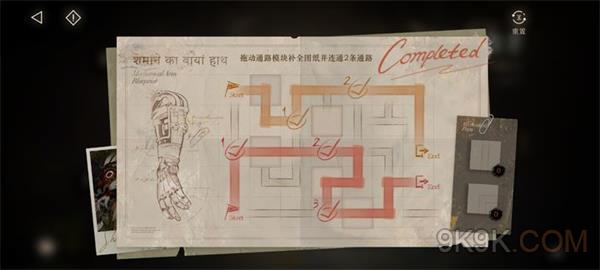 重置
शमान का बायां हाथ
拖动通路模块补全图纸并连通2条通路
Completed
Mechanical Arm
Blueprint
Start
2
1
1
2
End
End
3
Start
0
0
9K9K.COM